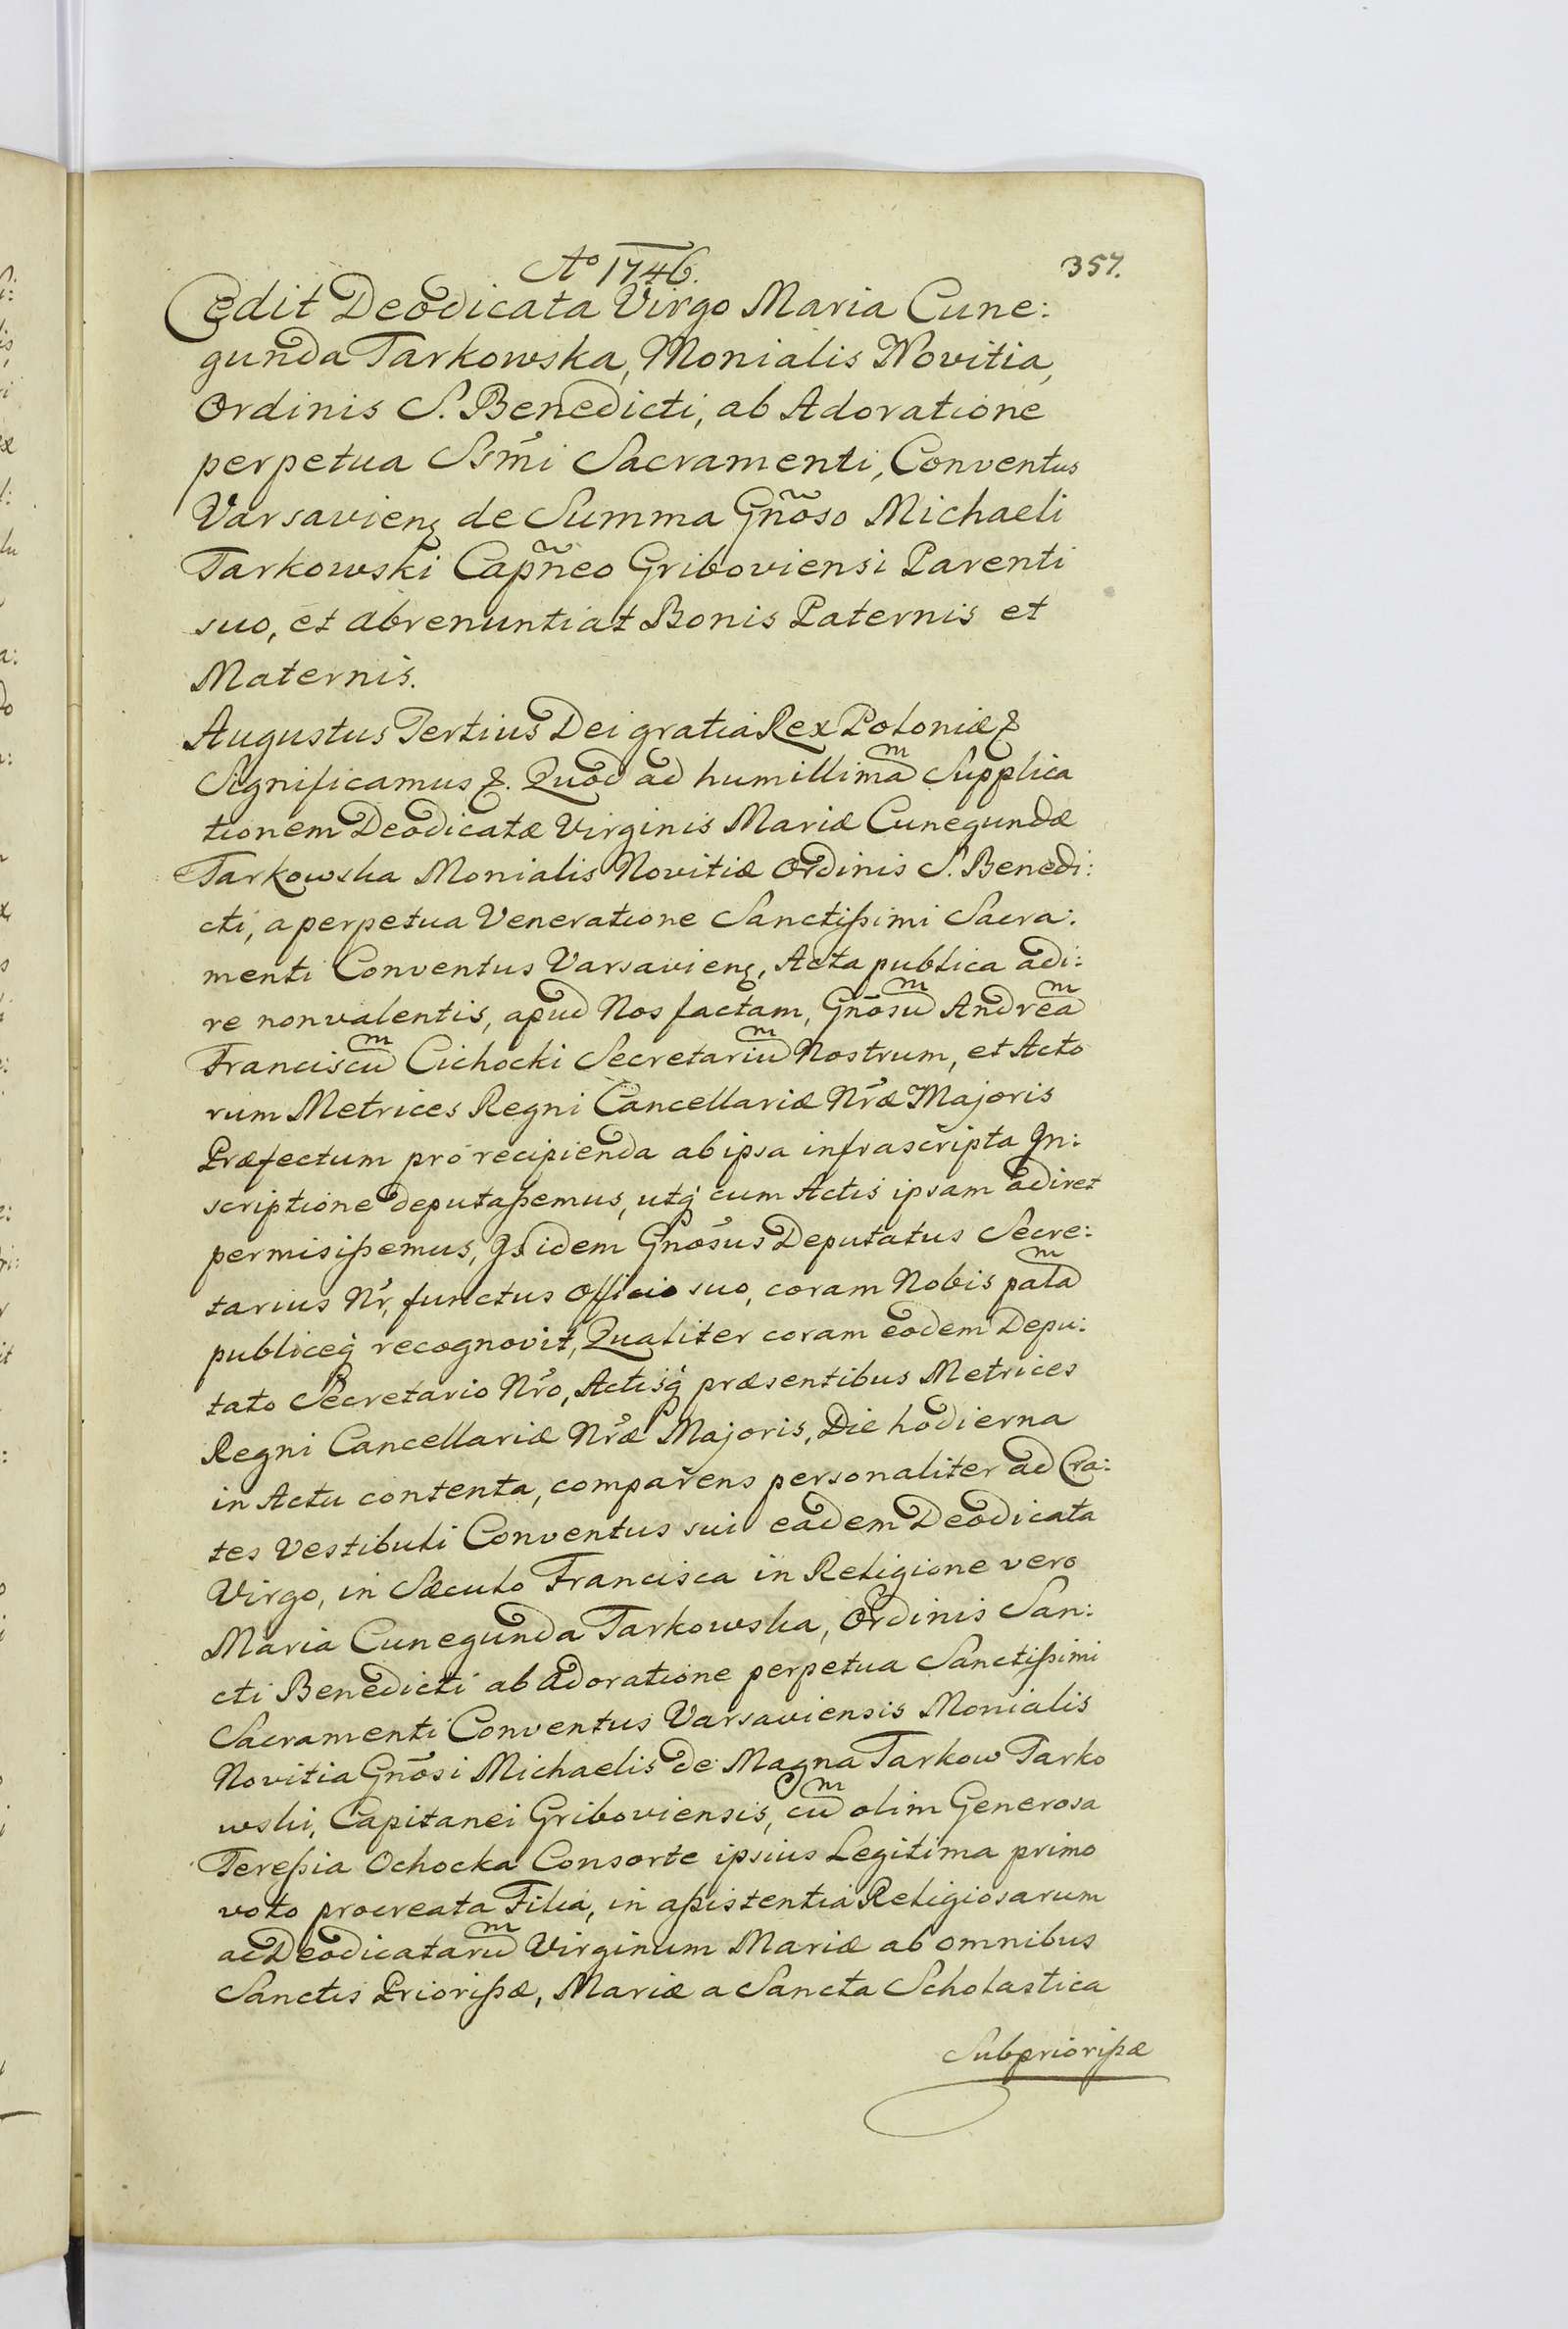 Aº 1746.
357.
Cedit Deodicata Virgo Maria Cune:
gunda Tarkowska, Monialis Novitia,
Ordinis S. Benedicti, ab Adoratione
perpetua Ssm̃i Sacramenti, Conventus
Varsavienȝ de Summa Gnõso Michaeli
Tarkowski Capñeo Griboviensi Parenti
suo, et abrenuntiat Bonis Paternis et
Maternis.
Augustus Tertius Dei gratia Rex Poloniæ &
Significamus &. Quod ad humillimaᵐ Supplica
tionem Deodicatæ Virginis Mariæ Cunegundæ
Tarkowska Monialis Novitiæ Ordinis S. Benedi:
cti, a perpetua Veneratione Sanctißimi Sacra:
menti Conventus Varsavienȝ, Acta publica adi:
re non valentis, apud Nos factam, Gnõsuᵐ Andreaᵐ
Franciscuᵐ Cichocki Secretariuᵐ Nostrum, et Acto
rum Metrices Regni Cancellariæ Nr̃æ Majoris
Præfectum pro recipienda ab ipsa infrascripta In:
scriptione deputaßemus, utq́ cum Actis ipsam adiret
permisißemus, Is idem Gnõsus Deputatus Secre:
tarius Nr̃, functus officio suo, coram Nobis palaᵐ
publiceq́ recognovit, Qualiter coram eodem Depu:
tato Secretario Nr̃o, Actisq́ præsentibus Metrices
Regni Cancellariæ Nr̃æ Majoris, Die hodierna
in Actu contenta, comparens personaliter ad Cra:
tes Vestibuli Conventus sui eadem Deodicata
Virgo, in Sæculo Francisca in Religione vero
Maria Cunegunda Tarkowska, Ordinis San:
cti Benedicti ab adoratione perpetua Sanctißimi
Sacramenti Conventus Varsaviensis Monialis
Novitia Gnõsi Michaelis de Magna Tarkow Tarko
wski, Capitanei Griboviensis, cuᵐ olim Generosa
Tereßia Ochocka Consorte ipsius Legitima primo
voto procreata Filia, in aßistentia Religiosarum
ac Deodicataruᵐ Virginum Mariæ ab omnibus
Sanctis Priorißæ, Mariæ a Sancta Scholastica
Subpriorißæ